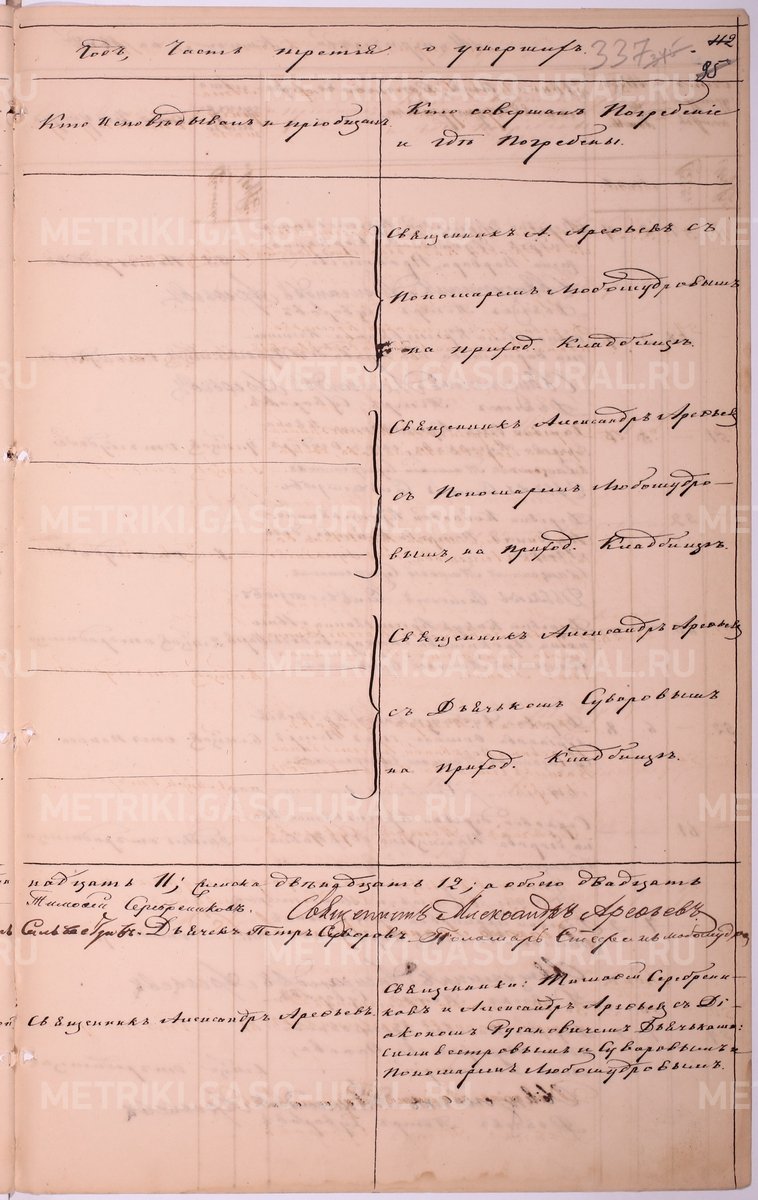 Годъ, Часть третія о умершихъ. 337
112
95
Кто Исповѣдывалъ и пріобщалъ
Кто совершалъ Погребеніе
и гдѣ Погребены.
Священникъ А. Арефьевъ съ
Пономаремъ Любомудровымъ
на приход. Кладбищѣ.
Священникъ Александръ Арефьевъ
съ Пономаремъ Любомудро-
вымъ, на приход. Кладбищѣ.
Священникъ Александръ Арефьевъ
съ Дьячькомъ Суваровымъ
на приход. Кладбищѣ.
надцать 11; женска двѣнадцать 12; а обоего двадцать
Тимофей Серебрениковъ. Священникъ Александръ Арефьевъ
Дьячекъ Петръ Суворовъ. Пономарь Любомудровъ
Священникъ Александръ Арефьевъ.
Священники: Тимофей Серебрени-
ковъ и Александръ Арефьевъ съ Ді-
акономъ Русановичемъ Дьячьками:
Силивестровымъ и Суваровымъ и
Пономаремъ Любомудровымъ.
METRIKI.GASO-URAL.RU